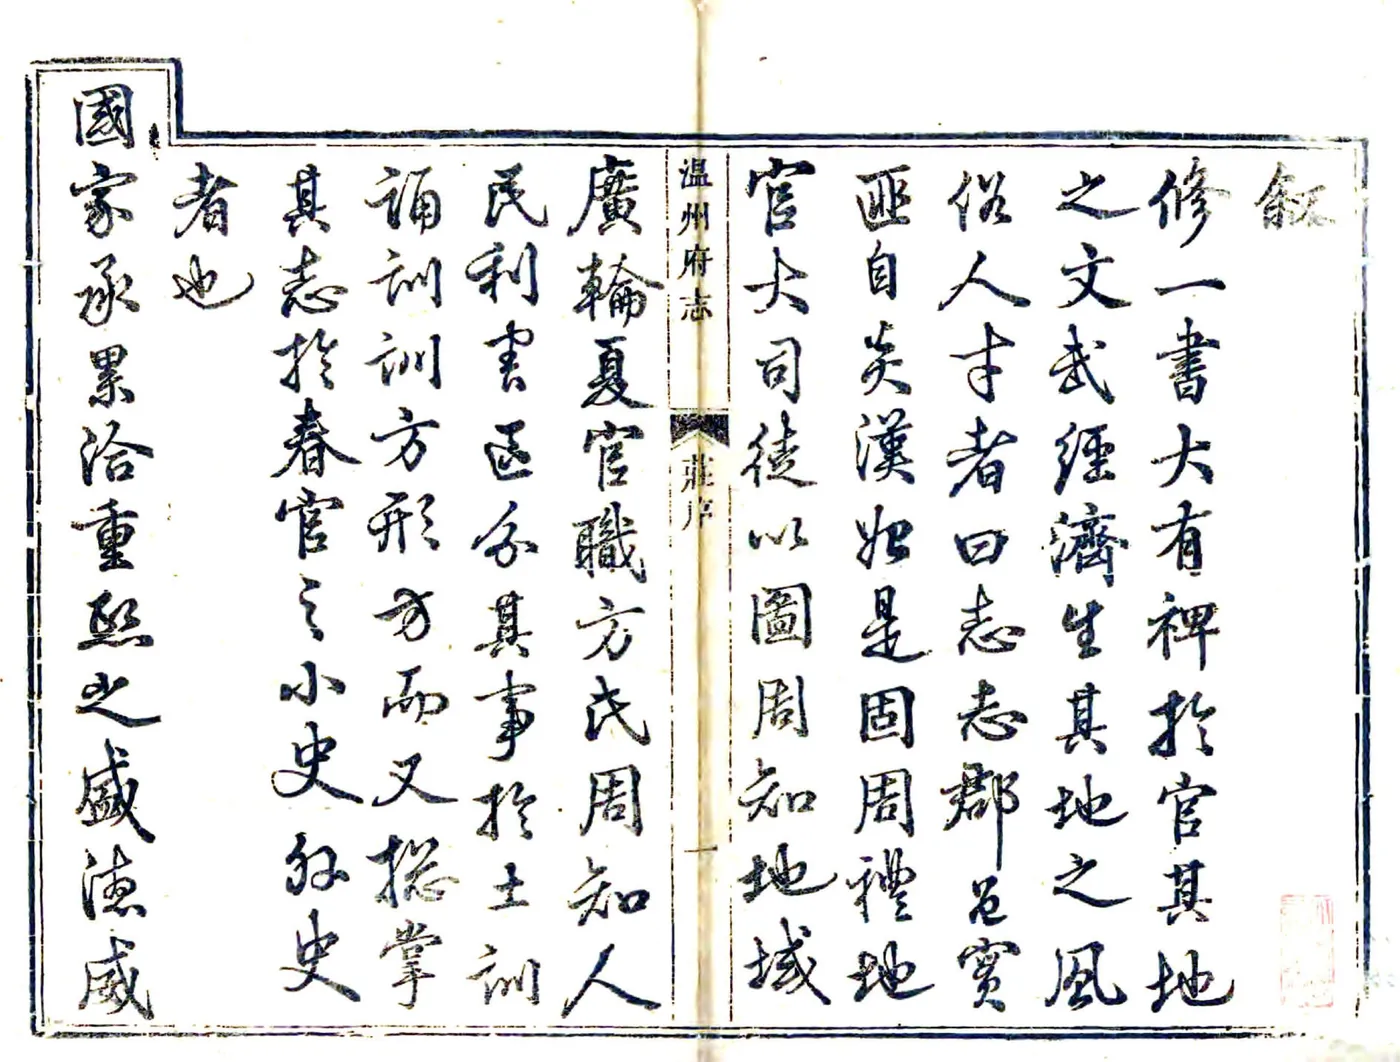 叙
修一書大有裨於官其地
之文武經濟生其地之風
俗人才者曰志志郡邑實
匪自炎漢始是固周禮地
官大司徒以圖周知地域
温州府志
莊序
一
廣輪夏官職方民周知人
民利害區分其事於土訓
誦訓訓方形方而又掌
其志於春官之小史外史
者也
國家承累洽重熙之盛德威